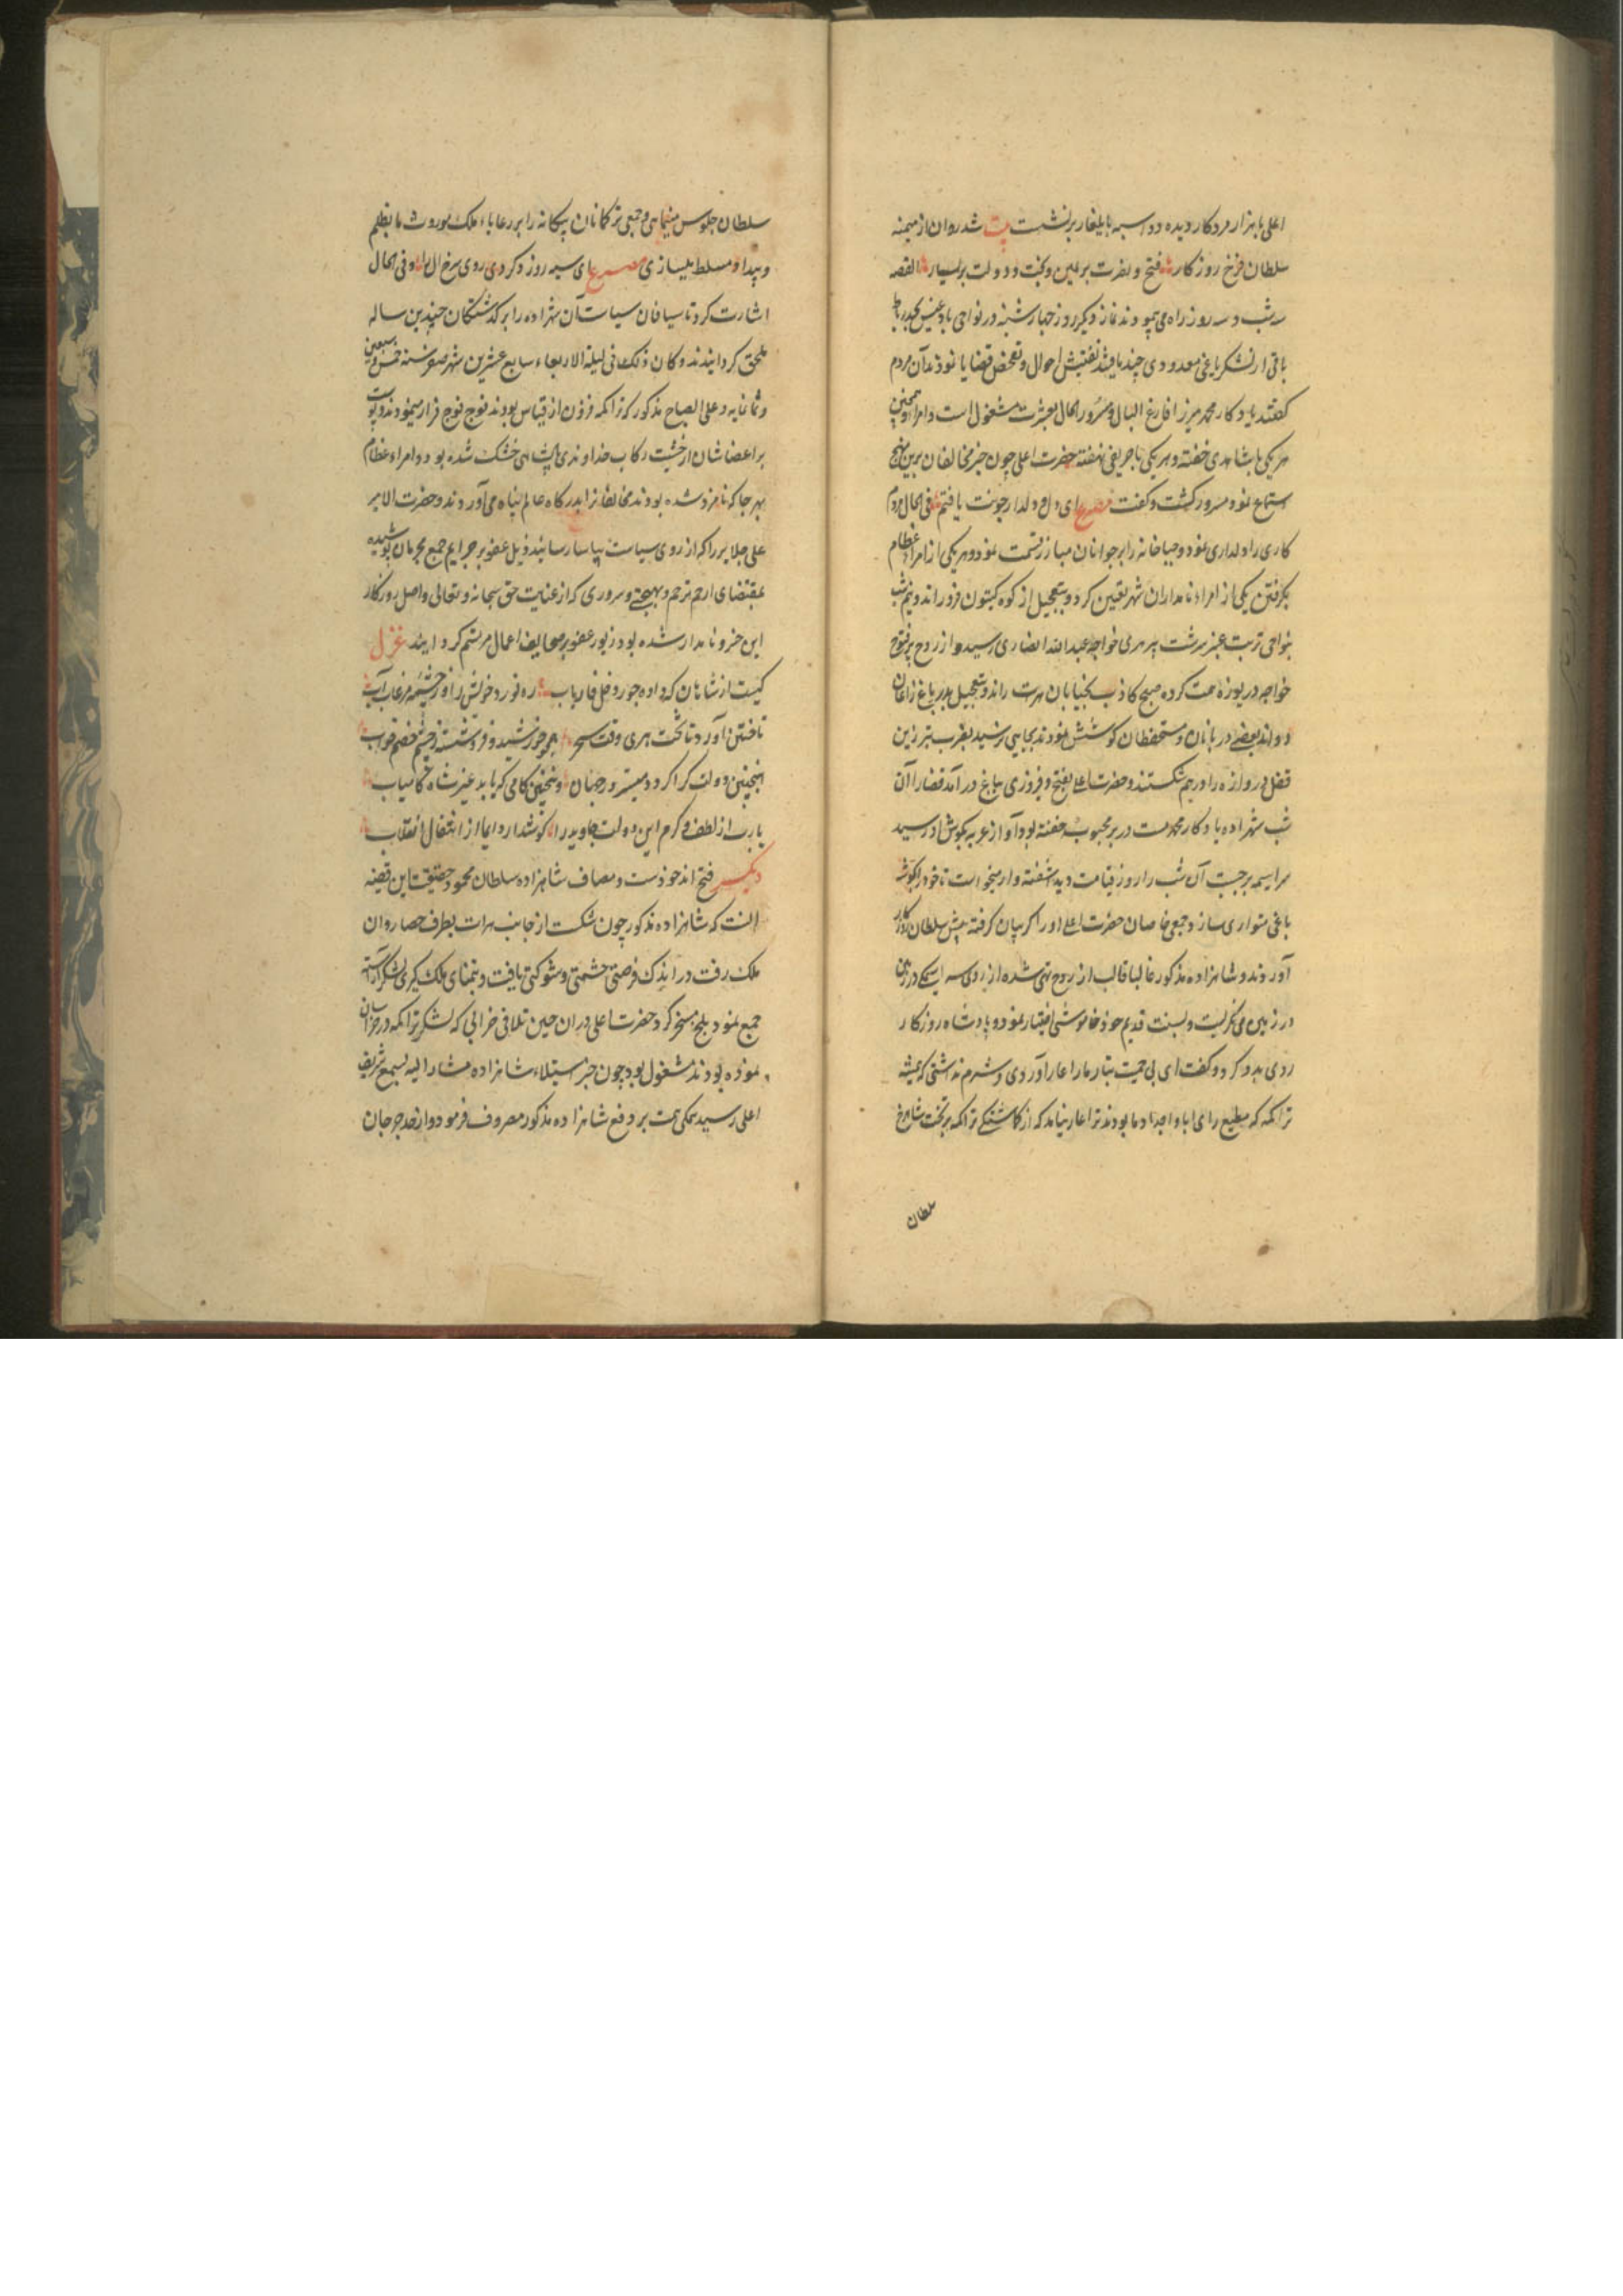 اعلی با هزار مرد کار دیده دو اسبه بایلغار برنشست بیت شد روان از میمنه
سلطان فرخ روزگار فتح و نصرت بر یمین و بخت و دولت بر یسار القصه
سه شب و سه روز راه می پیمودند نماز دیگر روز چهارشنبه در نواحی بادغیس بچند
باقی از لشکر یاغی معدودی چند یافتند تفتیش احوال و تفحص قضایا نمودند آن مردم
گفتند یادگار محمد میرزا فارغ البال و مسرور الحال بعشرت مشغول است و امراء همچنین
هر یکی با شاهدی خفته و هر یکی با حریفی نهفته حضرت اعلی چون خبر مخالفان برین نهج
استماع نمود مسرور گشت و گفت مصرع ای دل و دلدار چونت یافتم فی الحال مردم
کاری را دلداری نمود و جباخانه را بر جوانان مبارز قسمت نمود و هر یکی از امراء عظام
بگرفتن یکی از امراء نامداران شهر تعین کرد و بتعجیل از کوه کیتون فرو راند و نیم شب
بنواحی تربت عنبر سرشت پیر هری خواجه عبدالله انصاری رسید و از روح پر فتوح
خواجه دریوزه همت کرده صبح کاذب بخیابان هرت راند و بتعجیل بدر باغ زاغان
دواند بعضی دربانان و مستحفظان کوشش نمودند بجایی نرسید بضرب تبرزین
قفل دروازه را درهم شکستند و حضرت اعلی بفتح و فیروزی بباغ در آمد قضا را آن
شب شهزاده یادگار محمد مست در بر محبوبه خفته بود آواز عربه بگوش او رسید
سراسیمه برجست آن شب را روز قیامت دید آشفته وار میخواست تا خود را بگوشه
باغی متواری سازد جمعی خاصان حضرت اعلی او را گریبان گرفته پیش سلطان روزگار
آوردند و شاهزاده مذکور غالبا قالب از روح تهی شده از روی سراسیمگی
در زمین می نگریست و بسنت قدیم خود خاموشی اختیار نمود و پادشاه روزگار
روی بدو کرد و گفت ای بی حمیت تبار ما را عار آوردی و شرم نداشتی که همیشه
تراکمه که مطیع رای آبا و اجداد ما بودند ترا عار نیامد که از گماشتگی تراکمه بر تخت شاهرخ
سلطان
سلطان جلوس مینمایی و جمعی ترکمانان بیگانه را بر رعایاء ملک موروث ما بظلم
و بیداد مسلط میسازی مصرع ای سیه روز و کردی روی سرخ آل را و فی الحال
اشارت کرد تا سیافان سیاست آن شهزاده را بر گذشتگان چندین ساله
ملحق گردانیدند و کان ذلک فی لیلة الاربعاء سابع عشرین شهر صفر سنة خمس و سبعین
و ثمانمایه و علی الصباح مذکور که تراکمه فزون از قیاس بودند فوج فوج فرار مینمودند و پوست
بر اعضاشان از خشیت رکاب خداوندی پادشاهی خشک شده بود و امراء عظام
بهر جا که نامزد شده بودند مخالفان را بدرگاه عالم پناه می آوردند و حضرت الامیر
علی جلایر را که از روی سیاست بیاسا رسانید ذیل عفو بر جرایم جمع مجرمان پوشیده
بمقتضای ارحم ترحم و بهجتی و سروری که از عنایت حق سبحانه و تعالی واصل روزگار
این خسرو نامدار شده بود زیور عفو بر صحایف اعمال مرتسم گردانید غزل
کیست از شاهان که داده جور و فل فاریاب ره نورد خویش را از چشمه مرغاب آب
تاختن آورد تا تخت هری وقت سحر همچو خورشید و فروشسته ز چشم خصم خواب
اینچنین دولت کرا گردد میسر در جهان وینچنین کامی که یابد غیر شاه کامیاب
یا رب از لطف و کرم این دولت جاوید را گوشدار دایما از انتقال انقلاب
دیگر فتح اندخودست و مصاف شاهزاده سلطان محمود حقیقت این قضیه
آنست که شاهزاده مذکور چون شکست از جانب هرات بطرف حصار روان
ملک رفت در اندک فرصتی حشمتی و شوکتی یافت و بتمنای ملک گیری لشکر آراسته
جمع نمود بلخ مسخر کرد و حضرت اعلی در آن حین تلافی خرابی که لشکر تراکمه در خراسان
نموده بودند مشغول بود چون خبر استیلاء شاهزاده مشار الیه بسمع شریف
اعلی رسید همگی همت بر دفع شاهزاده مذکور مصروف فرمود و از حد جرجان